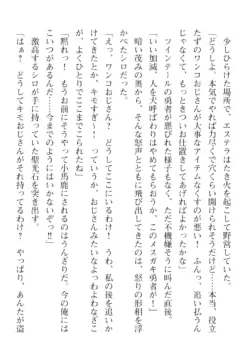 少しひらけた場所で、エステラはたき火を起こして野営していた。
「どうしよ、本気でやれば力尽くで穴くらい開けられそうだけど……本当、役立
たずのワンコおじさんが大事なアイテムなくすのが悪い！　ふんっ、追い払うん
じゃなくて、もっときついお仕置きしてあげればよかったかな」
ツインテールの勇者が悪びれた様子もなく、ただ不機嫌そうに叫んだ直後。
「いい加減、人を犬呼ばわりはやめてもらおうか、このメスガキ勇者が！」
暗い茂みの奥から、そんな怒声とともに飛び出してきたのは、怒りの形相を浮
かべたシロだった。
「えっ、ワンコおじさん？　どうしてここにいるわけ？　うわ、私の後を追いか
けてきたとか、キモすぎー！　っていうか、おじさんみたいなよわよわなざこ
が、よくひとりでここまでこられたね」
「黙れっ！　もうお前にそうやって小馬鹿にされるのはうんざりだ、今の俺には
こいつがあるんだ……今までのようにはいかないぞっ!!」
激高するシロが手に持っていた聖光石を突き出す。
「はぁ？　どうしてキモおじさんがそれ持ってるわけ？　やっぱり、あんたが盗